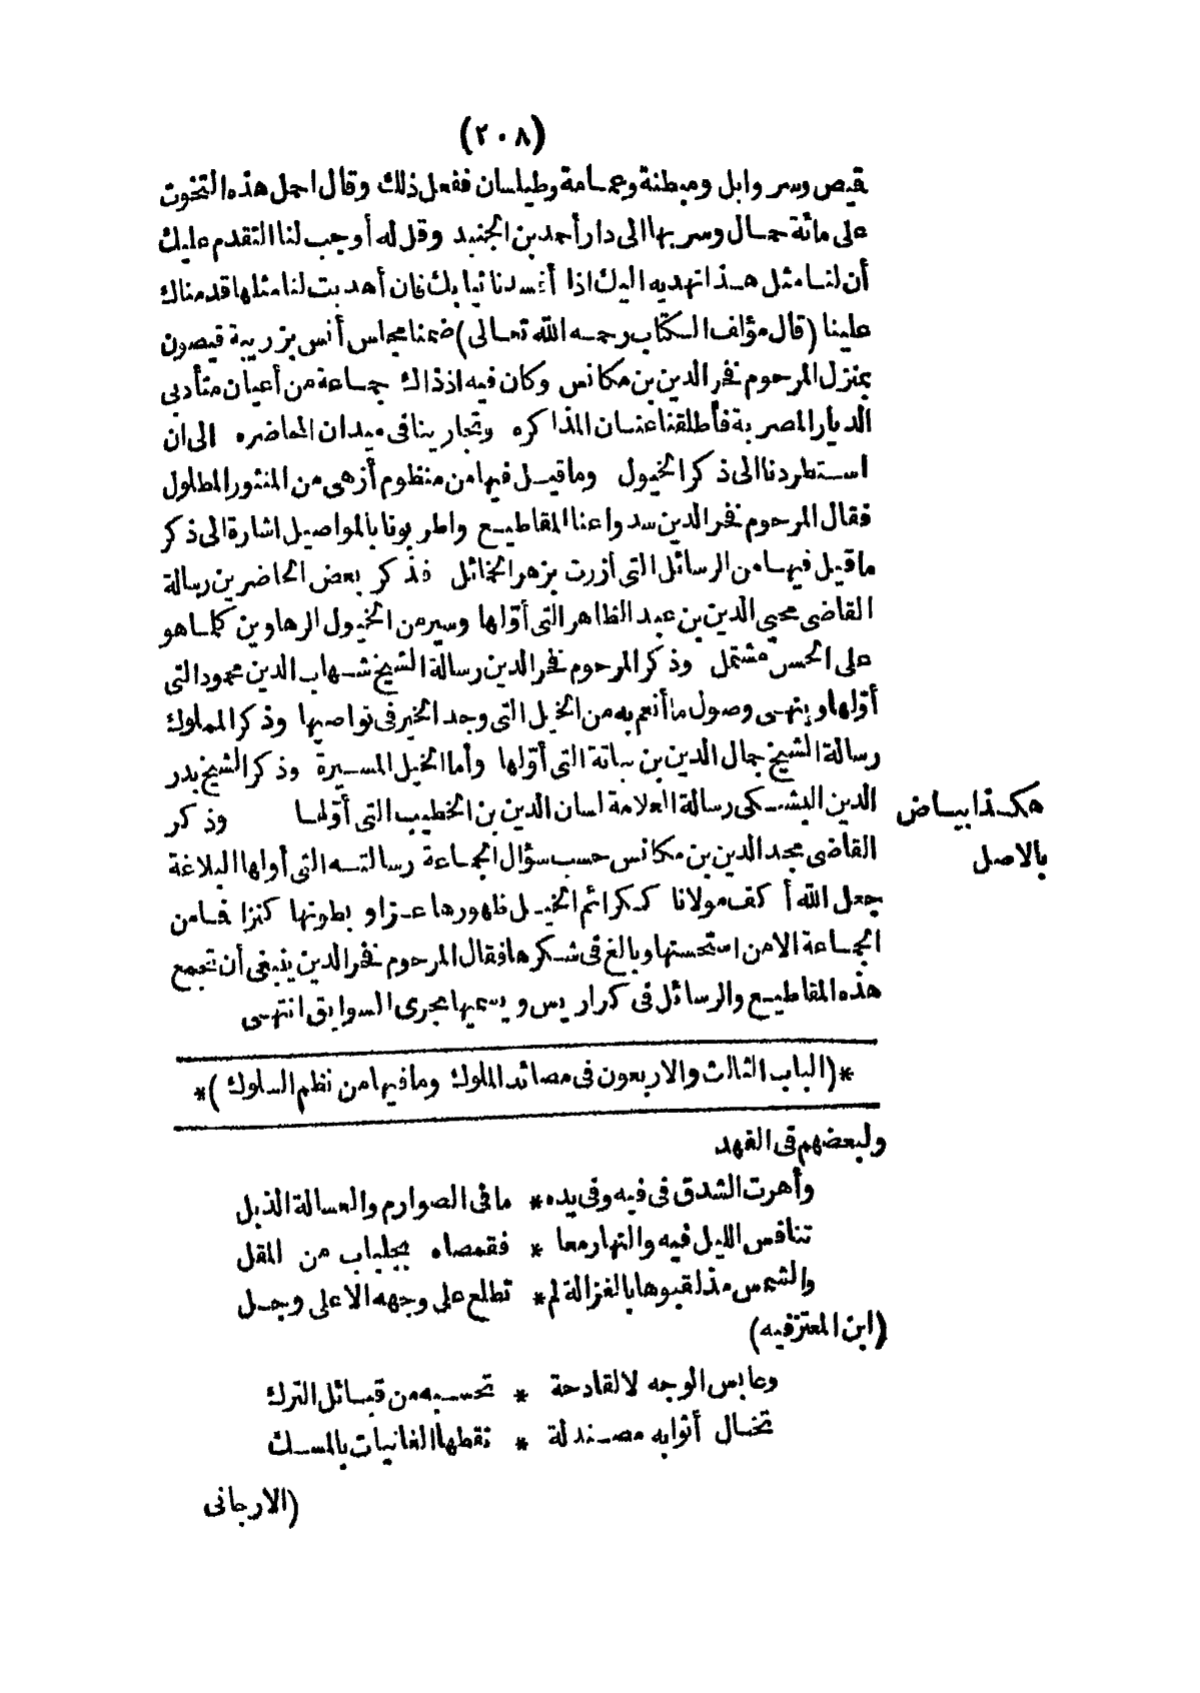 (٢٠٨)
قيص وسراويل ومبطنة وعمامة وطيلسان ففعل ذلك وقال احمل هذه التخوت
على مائة حمال وسر بها الى دار أحمد بن الجنيد وقل له أوجب لنا التقدم عليك
أن لنا مثل هذا نهديه اليك اذا أفسدنا ثيابك فان أهديت لنا مثلها قدمناك
علينا (قال مؤلف الكتاب رحمه الله تعالى) ضمنا مجلس أنس بزريبة قيصون
بمنزل المرحوم فخر الدين بن مكانس وكان فيه اذذاك جماعة من أعيان متأدبى
الديار المصرية فأطلقنا عنان المذاكره وتجارينا فى ميدان المحاضره الى ان
استطردنا الى ذكر الخيول وما قيل فيها من منظوم أزهى من المنثور المطلول
فقال المرحوم فخر الدين سدوا عنا المقاطيع واطربونا بالمواصيل اشارة الى ذكر
ما قيل فيها من الرسائل التى أزرت بزهر الخمائل فذكر بعض الحاضرين رسالة
القاضى محيى الدين بن عبد الظاهر التى أوّلها وسير من الخيول الرهاوين كلما هو
على الحسن مشتمل وذكر المرحوم فخر الدين رسالة الشيخ شهاب الدين محمود التى
أوّلها وينهى وصول ما أنعم به من الخيل التى وجد الخير فى نواصيها وذكر المملوك
رسالة الشيخ جمال الدين بن نباتة التى أوّلها وأما الخيل المسيرة وذكر الشيخ بدر
الدين البشتكى رسالة العلامة لسان الدين بن الخطيب التى أوّلها وذكر
هكذا بياض
بالاصل
القاضى مجد الدين بن مكانس حسب سؤال الجماعة رسالته التى أولها البلاغة
جعل الله أكف مولانا ككرائم الخيل ظهورها عزا وبطونها كنزا فما من
الجماعة الا من استحسنها وبالغ فى شكرها فقال المرحوم فخر الدين ينبغى أن تجمع
هذه المقاطيع والرسائل فى كراريس ويسميها مجرى السوابق انتهى
*(الباب الثالث والاربعون فى مصائد الملوك وما فيها من نظم السلوك)*
ولبعضهم فى الفهد
وأهرت الشدق فى فيه وفى يده * ما فى الصوارم والعسالة الذبل
تنافس الليل فيه والنهار معا * فقمصاه بجلباب من المقل
والشمس مذ لقبوها بالغزالة لم * تطلع على وجهه الا على وجل
(ابن المعتز فيه)
وعابس الوجه لا لقادحة * تحسبه من قبائل الترك
تخال أثوابه مصندلة * نقطها الغانيات بالمسك
(الارجانى